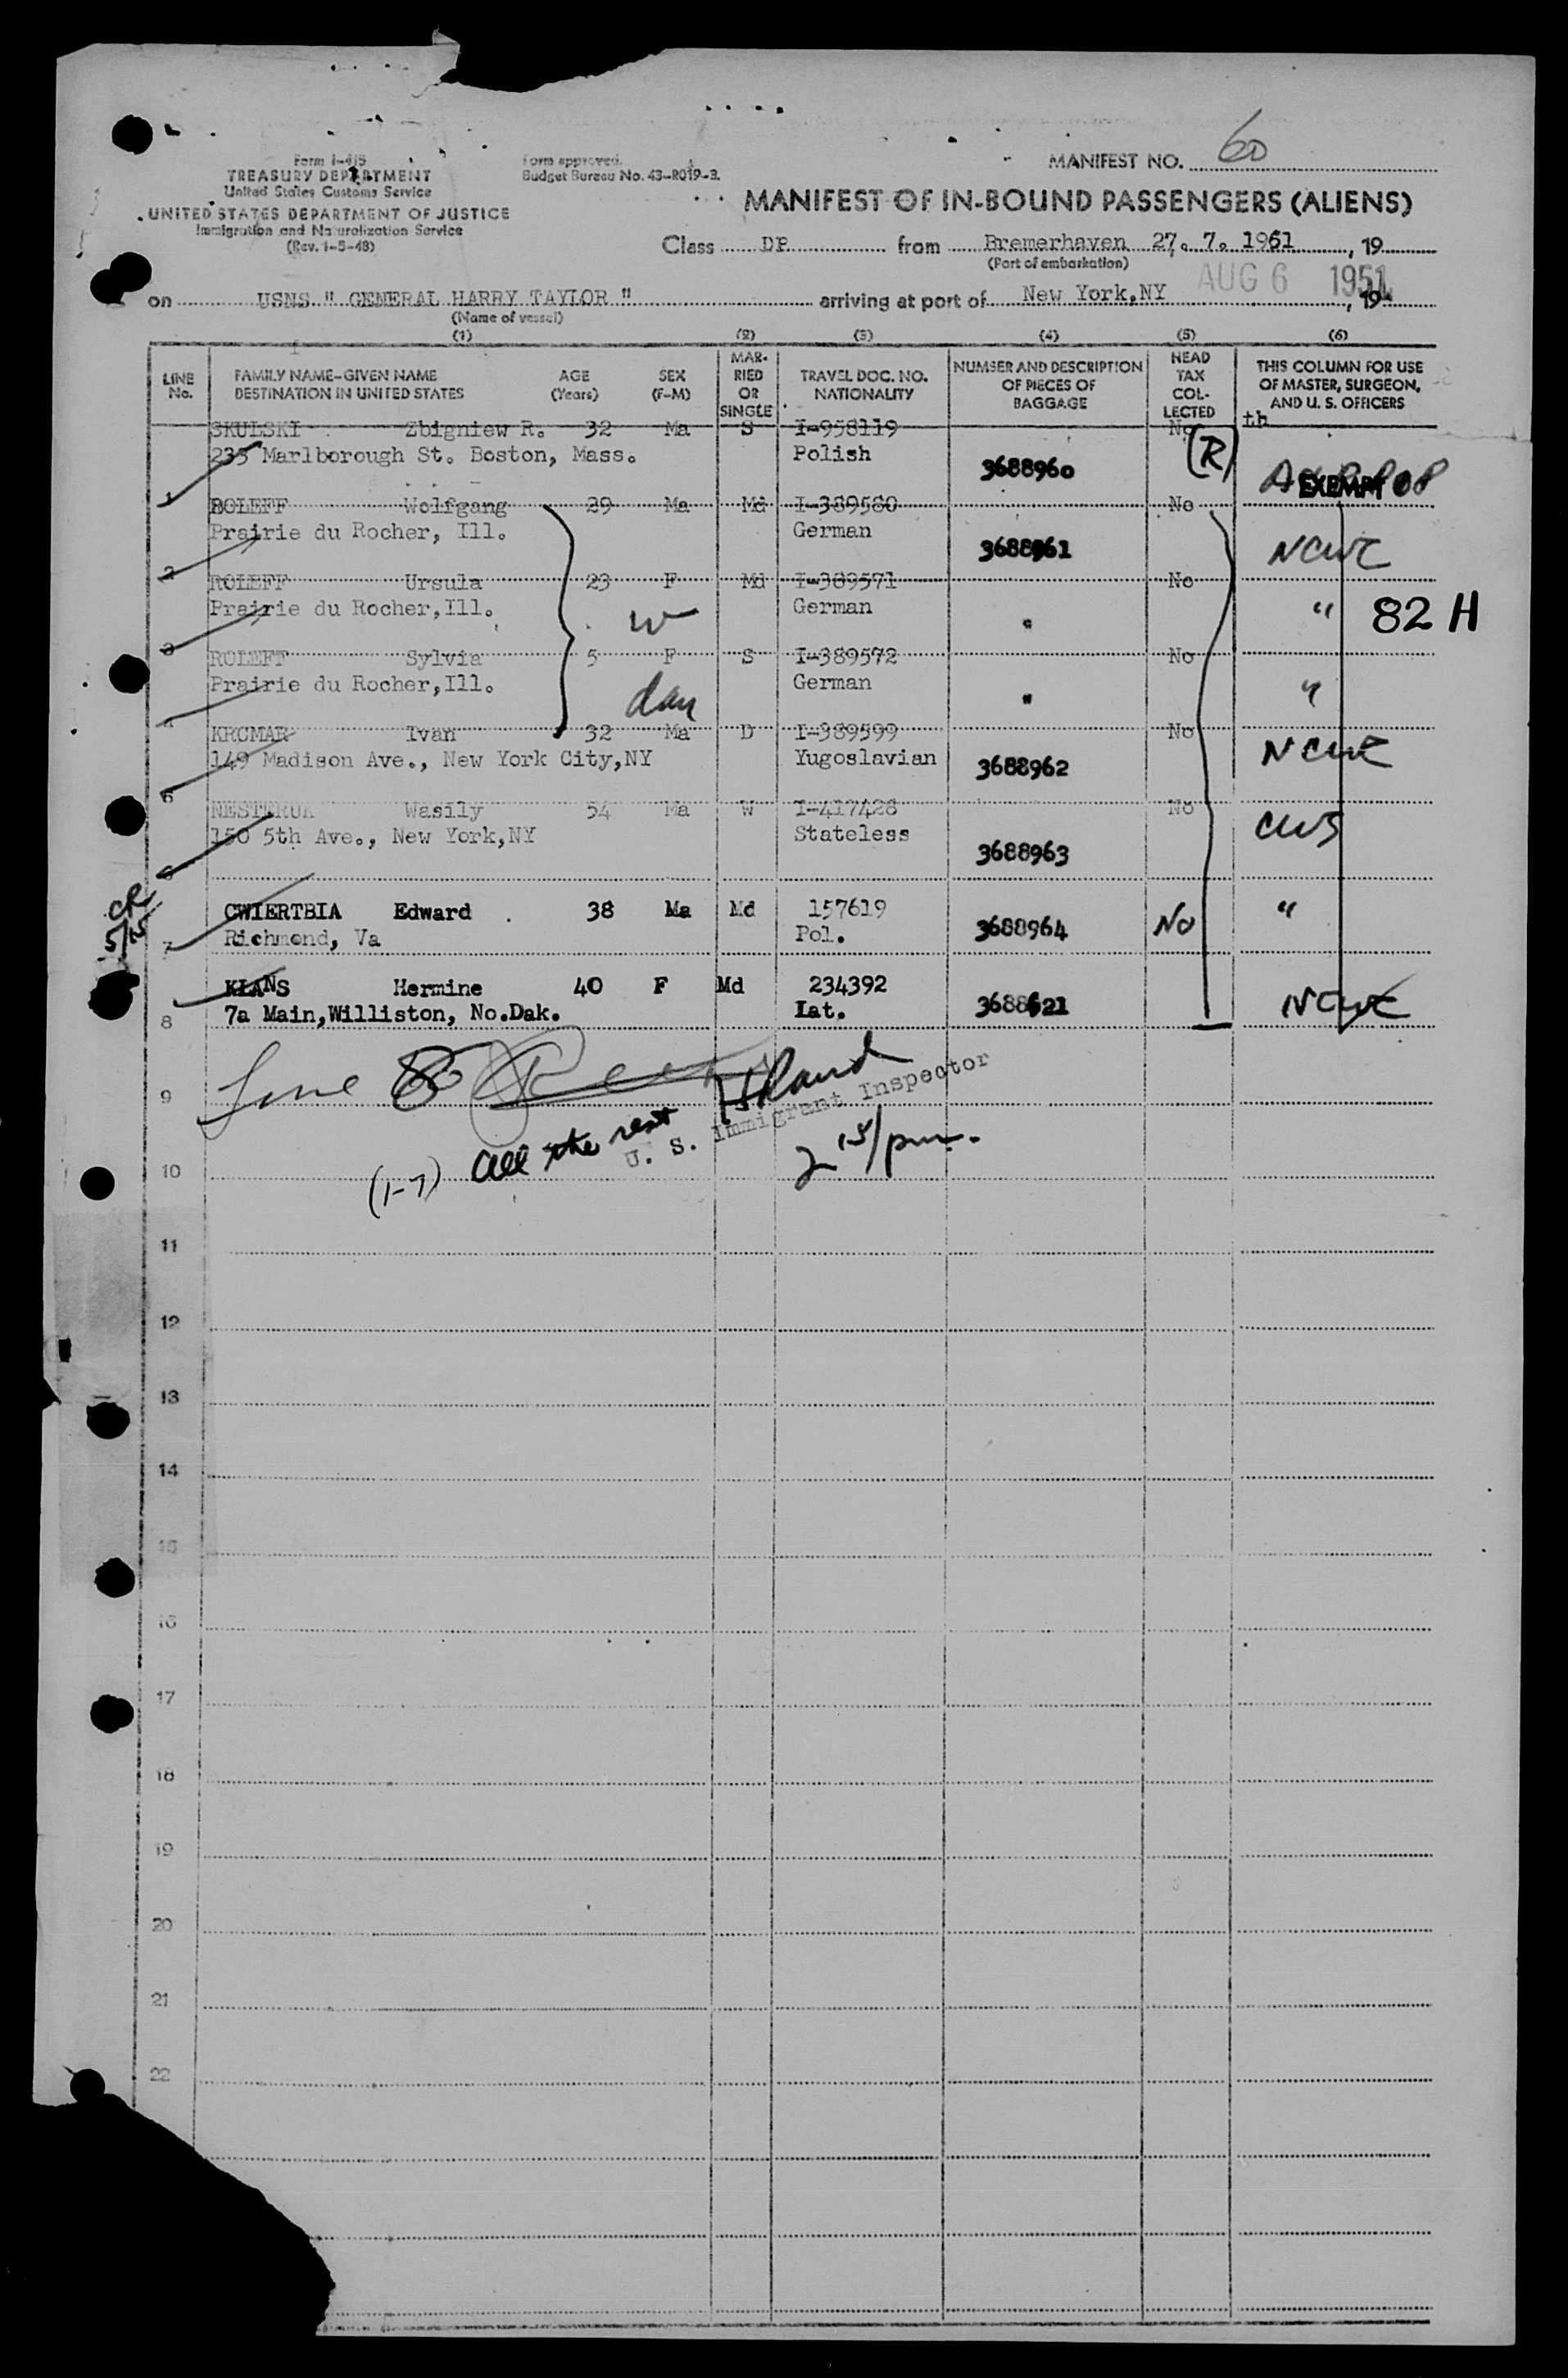 Form I-415
TREASURY DEPARTMENT
United States Customs Service
UNITED STATES DEPARTMENT OF JUSTICE
Immigration and Naturalization Service
(Rev. 1-5-48)
Form approved.
Budget Bureau No. 43-R019-3.
MANIFEST NO. 60
MANIFEST OF IN-BOUND PASSENGERS (ALIENS)
Class DP from Bremerhaven 27. 7. 1951, 19
(Port of embarkation)
on USNS " GENERAL HARRY TAYLOR " arriving at port of New York,NY AUG 6 1951, 19
(Name of vessel)
(1) (2) (3) (4) (5) (6)
LINE No. FAMILY NAME-GIVEN NAME DESTINATION IN UNITED STATES AGE (Years) SEX (F-M) MARRIED OR SINGLE TRAVEL DOC. NO. NATIONALITY NUMBER AND DESCRIPTION OF PIECES OF BAGGAGE HEAD TAX COLLECTED THIS COLUMN FOR USE OF MASTER, SURGEON, AND U. S. OFFICERS
SKULSKI Zbigniew R. 32 Ma S I-958119 No th
235 Marlborough St. Boston, Mass. Polish 3688960 (R) EXEMPT
1 ROLEFF Wolfgang 29 Ma Md I-389580 No
Prairie du Rocher, Ill. German 3688961 NCWC
2 ROLEFF Ursula 23 F Md I-389571 No
Prairie du Rocher,Ill. w German " " 82 H
3 ROLEFF Sylvia 5 F S I-389572 No
Prairie du Rocher,Ill. dau German " "
4 KRCMAR Ivan 32 Ma D I-389599 No
149 Madison Ave., New York City,NY Yugoslavian 3688962 NCWC
5 NESTERUK Wasily 54 Ma W I-417428 No
150 5th Ave., New York,NY Stateless 3688963 CWS
6
CWIERTBIA Edward . 38 Ma Md 157619 3688964 No "
7 Richmond, Va Pol.
KLANS Hermine 40 F Md 234392 3688621 NCWC
8 7a Main,Williston, No.Dak. Lat.
Line 8
9
U. S. Immigrant Inspector
(1-7) all the rest 2 15/pm.
10
11
12
13
14
15
16
17
18
19
20
21
22